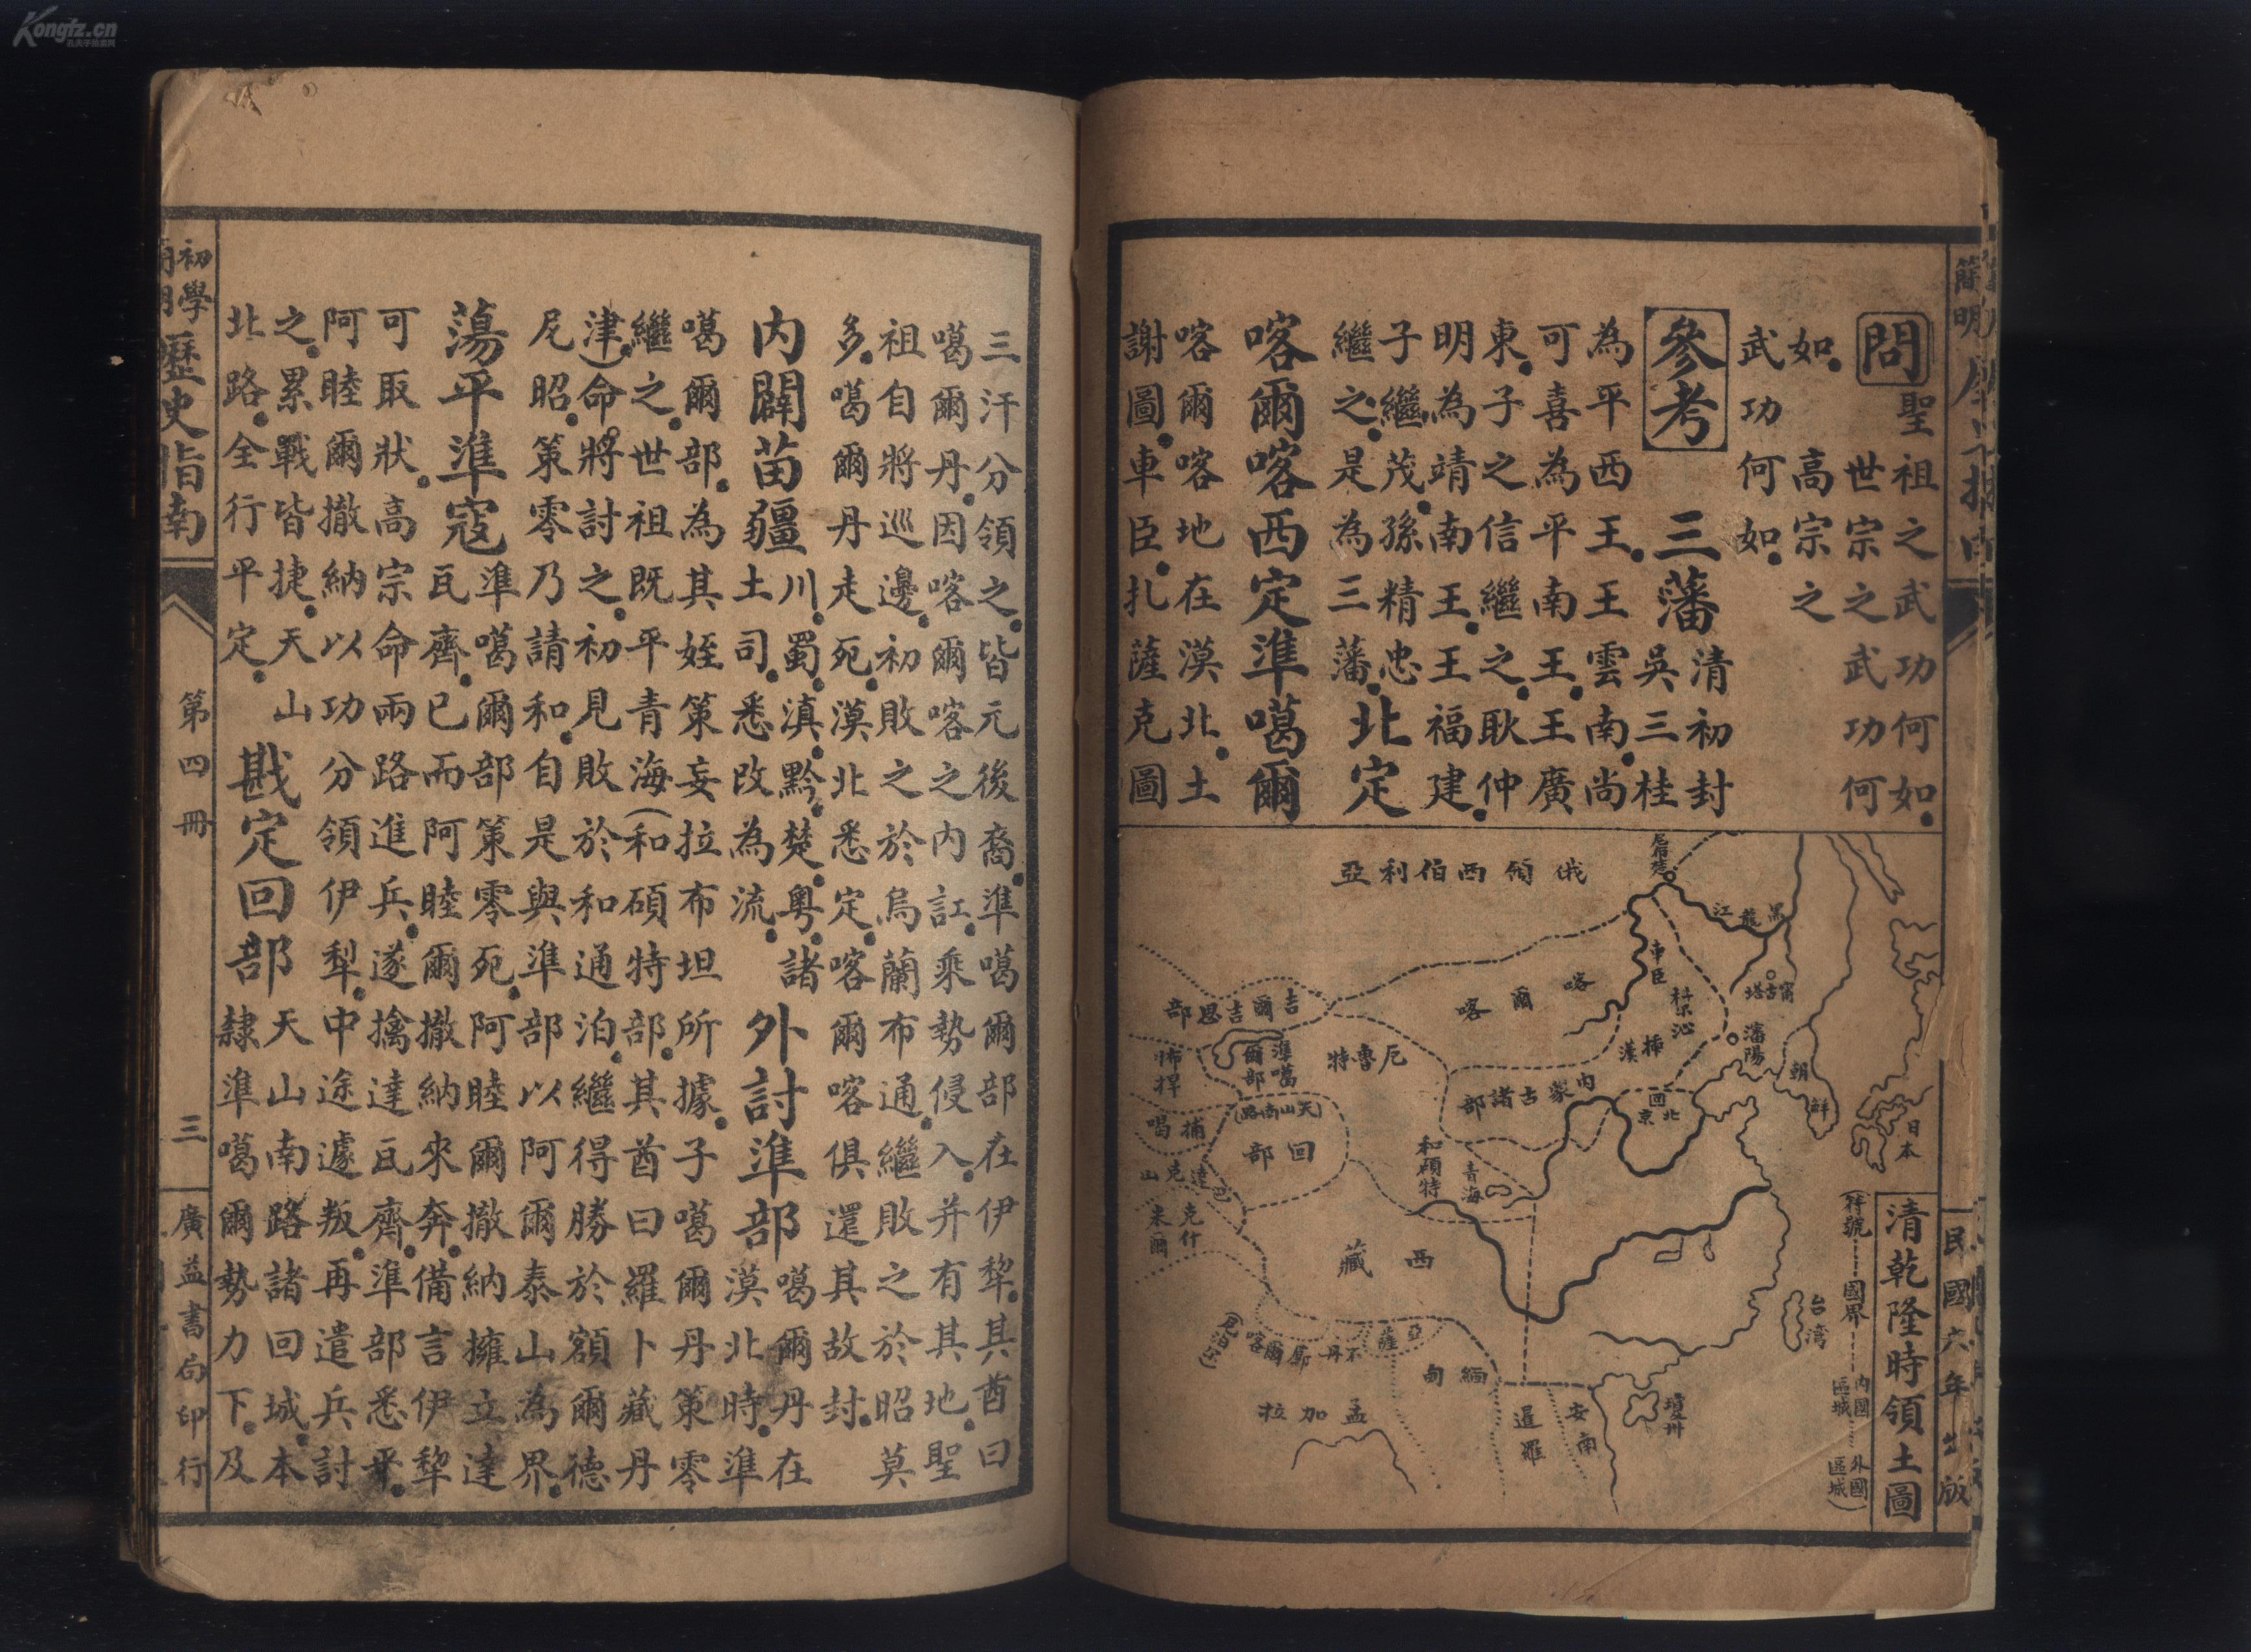 簡明
民國六年出版
問 聖祖之武功何如。
世宗之武功何
如。 高宗之
武功何如。
參考 三藩 清初封
吳三桂
為平西王。王雲南。尚
可喜為平南王。王廣
東。子之信繼之。耿仲
明為靖南王。王福建。
子繼茂。孫精忠
繼之。是為三藩。北定
喀爾喀西定準噶爾
喀爾喀地在漠北。土
謝圖。車臣。扎薩克圖
清乾隆時領土圖
(符號 國界 內國區域 外國區域)
俄領西伯利亞
尼布楚
黑龍江
車臣
喀爾喀
科尔沁
寧古塔
瀋陽
插漢
朝鮮
日本
吉爾吉思部
準噶爾部
厄魯特
內蒙古諸部
北京
布捍
(天山南路)
回部
捕喝
巴達克山
克什米爾
和碩特
青海
西藏
台灣
瓊州
亞薩
不丹
廓爾喀
(尼泊尔)
緬甸
孟加拉
暹羅
安南
三汗分領之。皆元後裔。準噶爾部在伊犂。其酋曰
噶爾丹。因喀爾喀之內訌。乘勢侵入。并有其地。聖
祖自將巡邊。初敗之於烏蘭布通。繼敗之於昭莫
多。噶爾丹走死。漠北悉定。喀爾喀俱還其故封。
內闢苗疆 川。蜀。滇。黔。楚。粵。諸
土司。悉改為流。
外討準部 噶爾丹在
漠北時。準
噶爾部。為其姪策妄拉布坦所據。子噶爾丹策零
繼之。世祖既平青海(和碩特部。其酋曰羅卜藏丹
津)命將討之。初見敗於和通泊。繼得勝於額爾德
尼昭。策零乃請和。自是與準部以阿爾泰山為界。
蕩平準寇 準噶爾部策零死。阿睦爾撒納擁立達
瓦齊。已而阿睦爾撒納來奔。備言伊犂
可取狀。高宗命兩路進兵。遂擒達瓦齊。準部悉平。
阿睦爾撒納以功分領伊犂。中途遽叛。再遣兵討
之。累戰皆捷。天山
北路。全行平定。
戡定回部 天山南路諸回城。本
隸準噶爾勢力下。及
初學簡明歷史指南
第四冊
三
廣益書局印行
Kongfz.cn
孔夫子旧书网